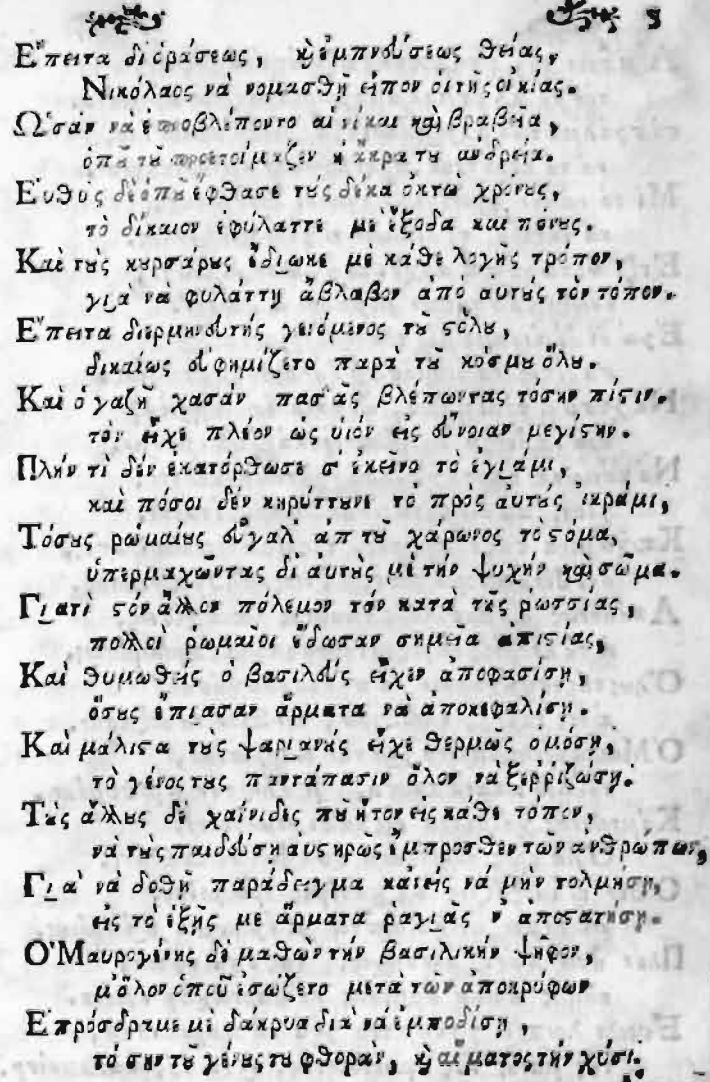 3
Ἔπειτα δι ὁράσεως, κ̀ ἐμπνεύσεως θείας,
Νικόλαος νὰ νομασθῇ εἶπον οἱ τῆς οἰκίας.
Ὡσὰν νὰ ἐπροβλέποντο αἱ νίκαι καὶ βραβεῖα,
ὁποῦ τοῦ προετοίμαζεν ἡ ἄκρα του ἀνδρεία.
Εὐθὺς δὲ ὁποῦ ἔφθασε τοὺς δέκα ὀκτὼ χρόνους,
τὸ δίκαιον ἐφύλαττε μὲ ἔξοδα καὶ πόνους.
Καὶ τοὺς κουρσάρους ἔδιωκε μὲ κάθε λογῆς τρόπον,
γιὰ νὰ φυλάττῃ ἄβλαβον ἀπὸ αὐτοὺς τὸν τόπον.
Ἔπειτα διερμηνευτὴς γενόμενος τοῦ στόλου,
δικαίως εὐφημίζετο παρὰ τοῦ κόσμου ὅλου.
Καὶ ὁ γαζῆ χασὰν πασᾶς βλέπωντας τόσην πίστιν.
τὸν εἶχε πλέον ὡς υἱὸν εἰς εὔνοιαν μεγίστην.
Πλὴν τὶ δὲν ἐκατόρθωσε σ' ἐκεῖνο τὸ ἐγιάμι,
καὶ πόσοι δὲν κηρύττουνε τὸ πρὸς αὐτοὺς ἰκράμι,
Τόσους ρωμαίους εὔγαλ' ἀπ τοῦ χάρωνος τὸ στόμα,
ὑπερμαχῶντας δι αὐτοὺς μὲ τὴν ψυχὴν καὶ σῶμα.
Γιατὶ στὸν ἄλλον πόλεμον τὸν κατὰ τῆς ρωσσίας,
πολλοὶ ρωμαῖοι ἔδωσαν σημεῖα ἀπιστίας,
Καὶ θυμωθεὶς ὁ βασιλεὺς εἶχεν ἀποφασίσῃ,
ὅσους ἔπιασαν ἄρματα νὰ ἀποκεφαλίσῃ.
Καὶ μάλιστα τοὺς ψαριανοὺς εἶχε θερμῶς ὀμόσῃ,
τὸ γένος τους παντάπασιν ὅλον νὰ ξερριζώσῃ.
Τοὺς ἄλλους δὲ χαίνιδες ποῦ ἦτον εἰς κάθε τόπον,
νὰ τοὺς παιδεύσῃ αὐστηρῶς ἔμπροσθεν τῶν ἀνθρώπων,
Γιὰ νὰ δοθῇ παράδειγμα κανεὶς νὰ μὴν τολμήσῃ,
εἰς τὸ ἑξῆς με ἄρματα ραγιᾶς ν' ἀποστατήσῃ.
Ὁ Μαυρογένης δὲ μαθὼν τὴν βασιλικὴν ψῆφον,
μ' ὅλον ὁποῦ ἐσώζετο μετὰ τῶν ἀποκρύφων
Ἐπρόσδραμε μὲ δάκρυα διὰ νὰ ἐμποδίσῃ,
τόσην τοῦ γένους του φθορὰν, κ̀ αἵματος τὴν χύσι.